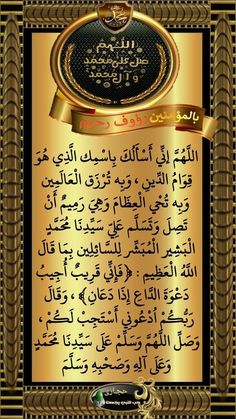 اللهم
صل على محمد
وآل محمد
بالمؤمنين رؤوف رحيم
اللَّهُمَّ إِنِّي أَسْأَلُكَ بِاسْمِكَ الَّذِي هُوَ
قِوَامُ الدِّينِ ، وَبِهِ تُرْزَقُ الْعَالَمِينَ
وَبِهِ تُحْيِ الْعِظَامَ وَهِيَ رَمِيمٌ أَنْ
تَصِلَ وَتُسَلِّمَ عَلَى سَيِّدِنَا مُحَمَّدٍ
الْبَشِيرِ الْمُبَشِّرِ لِلسَّائِلِينَ بِمَا قَالَ
اللَّهُ الْعَظِيمُ : ﴿فَإِنِّي قَرِيبٌ أُجِيبُ
دَعْوَةَ الدَّاعِ إِذَا دَعَانِ﴾ ، وَقَالَ
رَبُّكُمُ ادْعُونِي أَسْتَجِبْ لَكُمْ ،
وَصَلِّ اللَّهُمَّ وَسَلِّمْ عَلَى سَيِّدِنَا مُحَمَّدٍ
وَعَلَى آلِهِ وَصَحْبِهِ وَسَلَّمَ